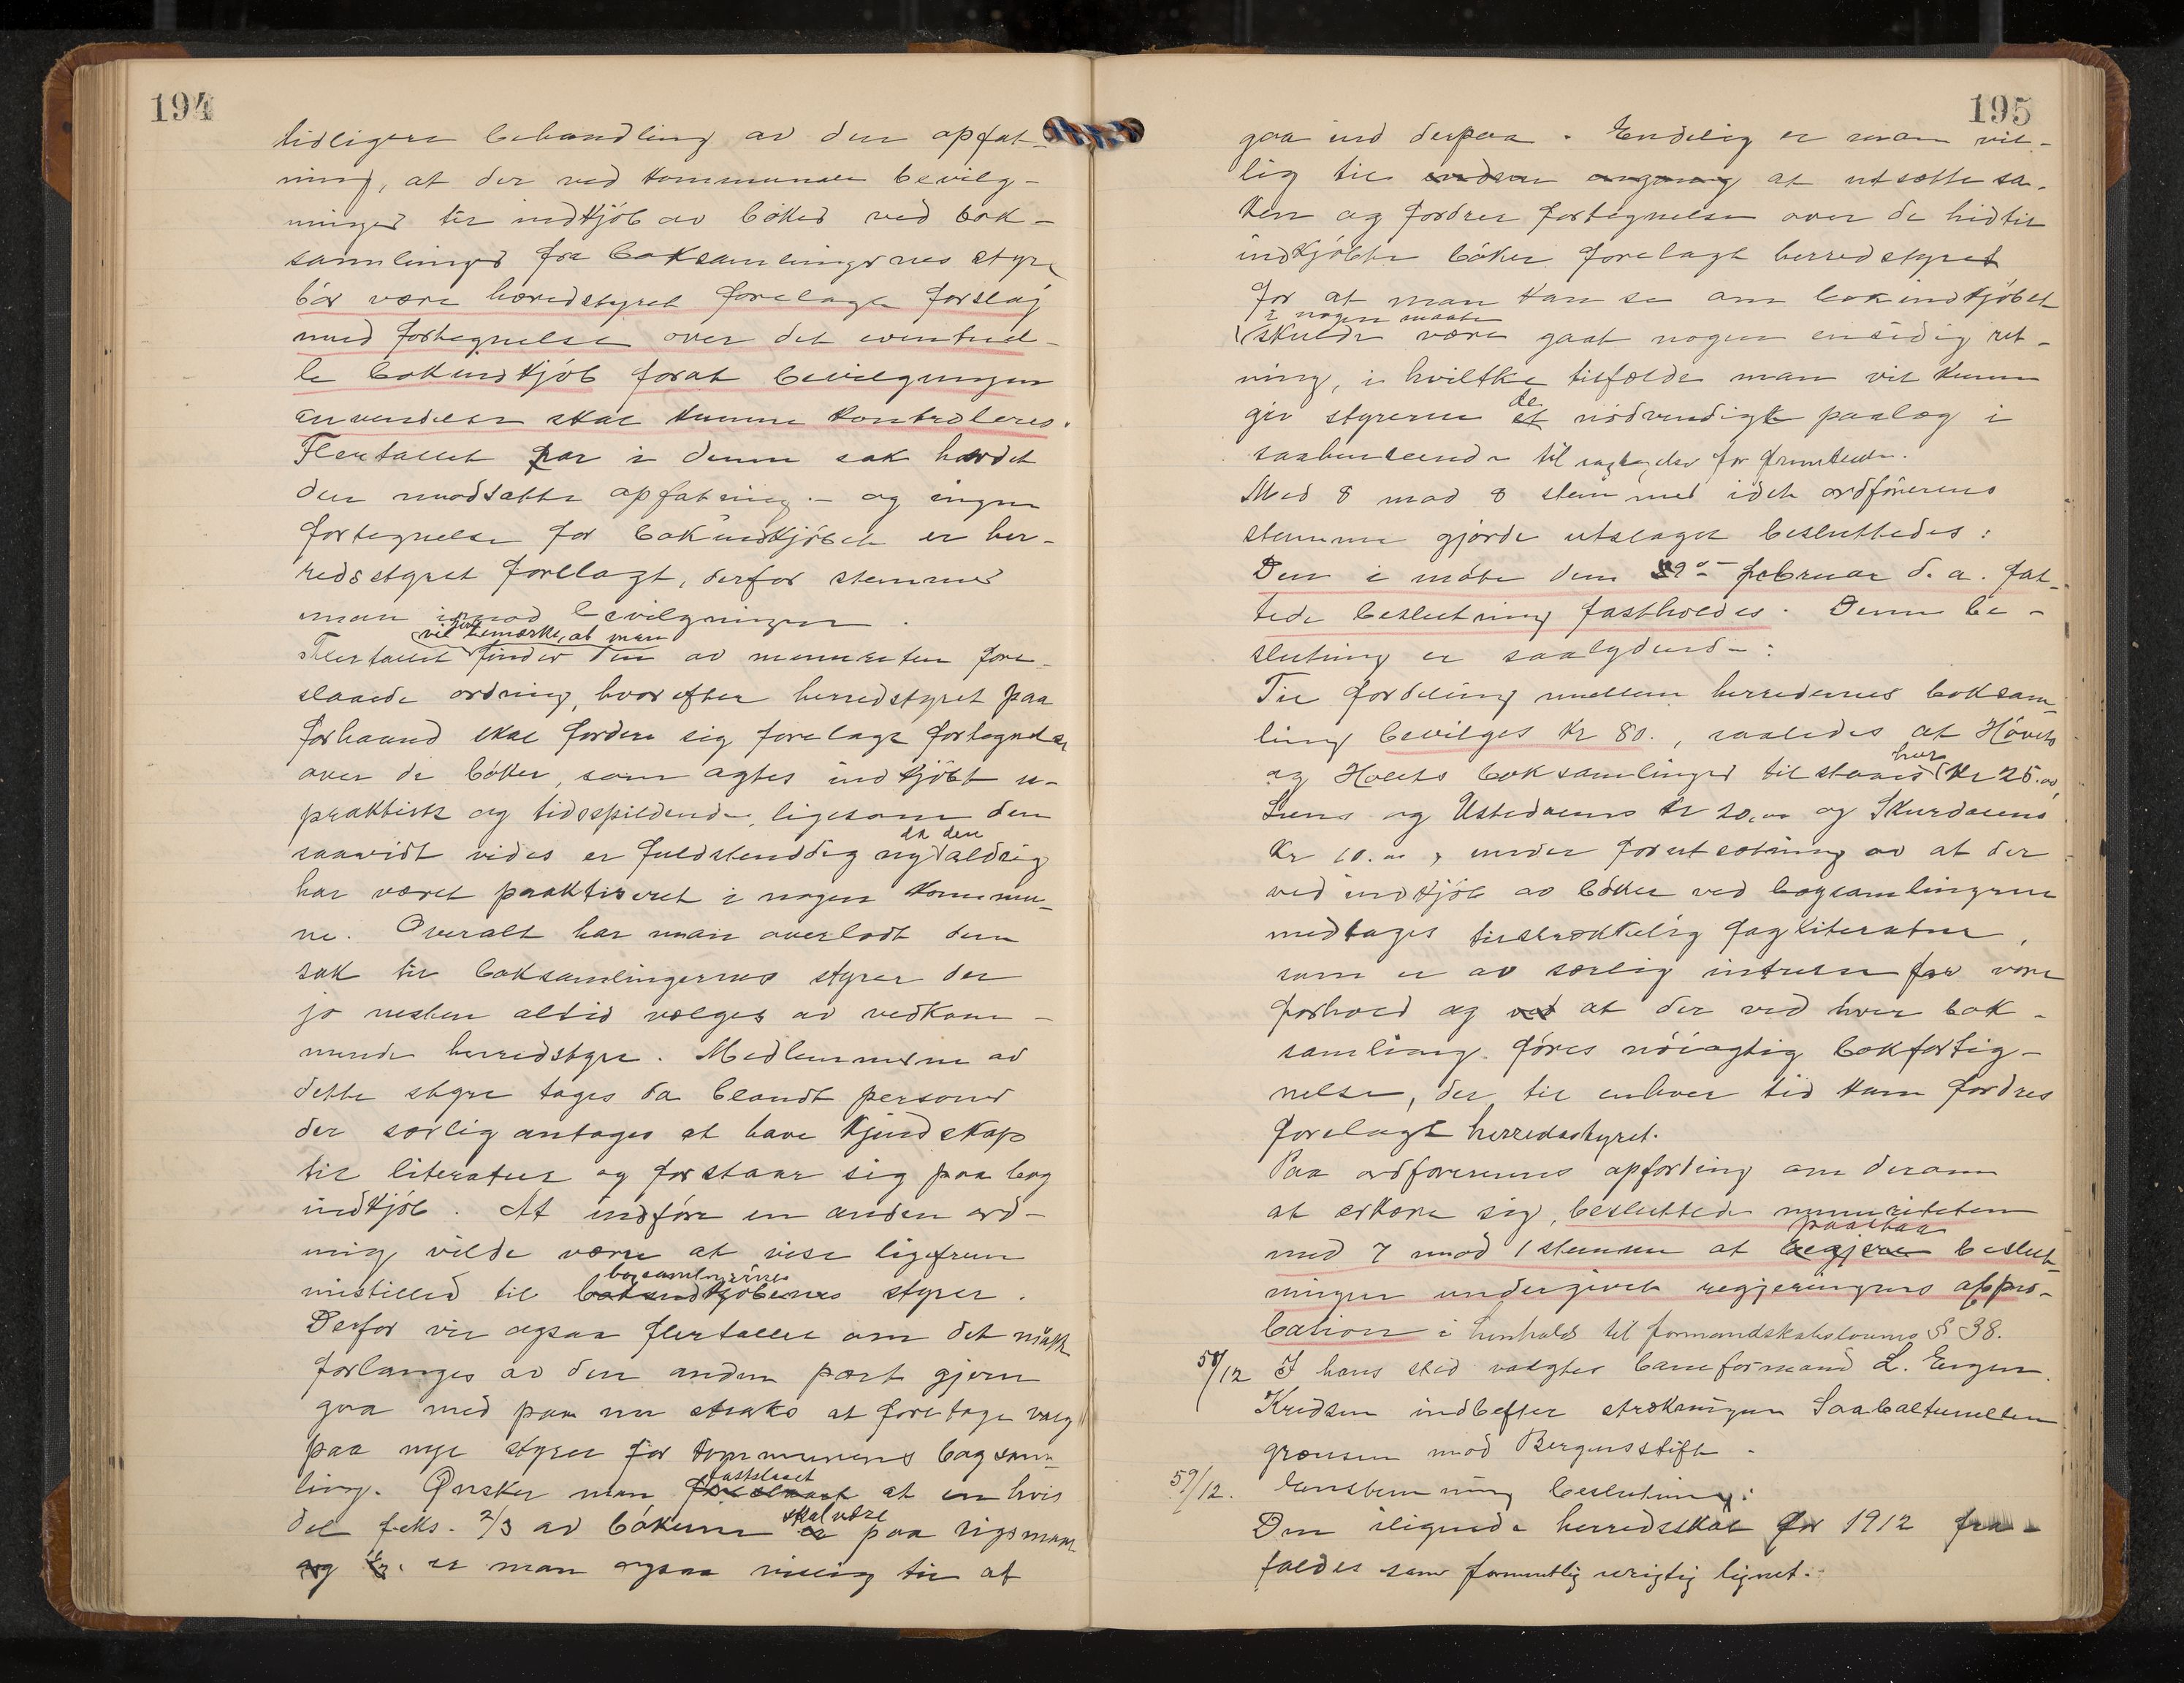 194
tidligere behandling av den opfat-
ning, at der ved kommunale bevilg-
ninger til indkjöb av böker ved bok-
samlinger fra boksamlingernes styre
bör være herredstyret forelagt forslag
med fortegnelse over det eventuel-
le bokindkjöb forat bevilgningen
anvendelse skal kunne kontroleres.
Flertallet har i denne sak havdet
den modsatte opfatning. – og ingen
fortegnelse for bokindkjöbet er her-
redsstyret forelagt, derfor stemmer
man imod bevilgningen.
vil bemærke, at man
Flertallet finder den av mennoriteten fore-
slaaede ordning, hvorefter herredstyret paa
forhaand skal fordre sig forelagt fortegnelse
over de böker, som agtes indkjöbt u-
praktisk og tidsspildende, ligesom den
da den
saavidt vides er fuldstendig ny aldrig
har været praktiseret i nogen kommu-
ne. Overalt har man overladt denne
sak til boksamlingernes styrer der
jo nesten altid vælges av vedkom-
mende herredstyre. Medlemmerne av
dette styre tages da blandt personer
der særlig antages at have kjendskap
til literatur og forstaar sig paa bog
indkjöb. At indföre en anden ord-
ning vilde være at vise ligefrem
bogsamlingernes
mistillid til bokindkjöbernes styrer.
Derfor vil ogsaa flertallet om det maatte
forlanges av den anden part gjerne
gaa med paa nu straks at foretage valg
paa nye styrer for kommunens bogsam-
fastslaaet
ling. Ønsker man foreslaaet at en hvis
skal være
del f.eks. 2/3 av bökerne er paa rigsmaal
og er man ogsaa villig til at
195
gaa ind derpaa. Endelig er man vil-
lig til at utsætte sa-
ken og fordrer fortegnelse over de hidtil
indkjöbte böker forelagt herredstyret
for at man kan se om bokindkjöbet
i nogen maate
skulde være gaat nogen ensidig ret-
ning, i hvilket tilfælde man vil kunne
de
giv styrerne et nödvendigt paalæg i
saahenseende til iagtagelse for fremtiden.
Med 8 mod 8 stemmer idet ordförerens
stemme gjorde utslaget besluttedes:
Den i möte den 29de februar d.a. fat-
tede beslutning fastholdes. Denne be-
slutning er saalydende:
Til fordeling mellem herredernes boksam-
ling bevilges kr 80., saaledes at Hövets
hver
og Holets boksamlinger tilstaaes kr 25.oo,
Liens og Ustedalens kr 20.oo og Skurdalens
kr 10.oo, under forutsætning av at der
ved indkjöb av böker ved bogsamlingerne
medtages tilstrækkelig fagliteratur,
som er av særlig intresse for vore
forhold og ved at der ved hver bok-
samling föres nöiagtig bokforteg-
nelse, der til enhver tid kan fordres
forelagt herredsstyret.
Paa ordförerens opfording om derom
at erklære sig, besluttede minoriteten
paastaa
med 7 mod 1 stemme at begjere beslut-
ningen undergivet regjeringens appro-
bation i henhold til formandskabslovens § 38.
58/12 I hans sted valgtes baneformand L. Engen.
Kredsen indbefter strækningen Saabaltunellen
grænsen mod Bergensstift.
59/12. Enstemmig beslutning:
Den ilignede herredsskat for 1912 fra-
faldes som formentlig urigtig lignet.